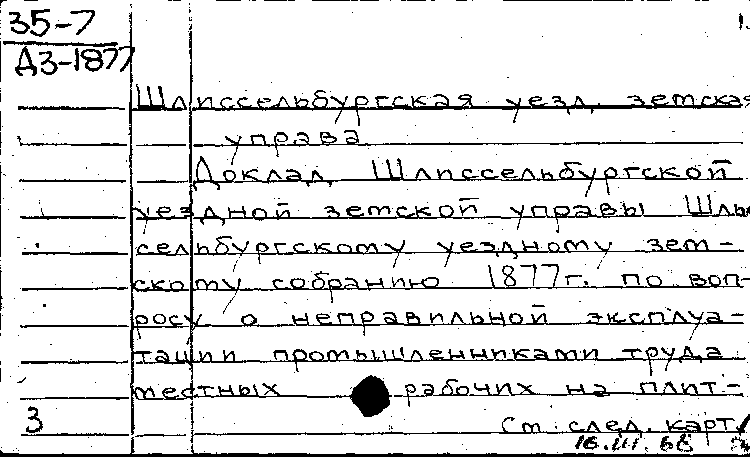 35-7
1.
Д3-1877
Шлиссельбургская уезд. земская
управа
Доклад Шлиссельбургской
уездной земской управы Шлис
сельбургскому уездному зем-
скому собранию 1877 г. по воп-
росу о неправильной эксплуа-
тации промышленниками труда
местных рабочих на плит-
3
См. след. карт.
16.III.68